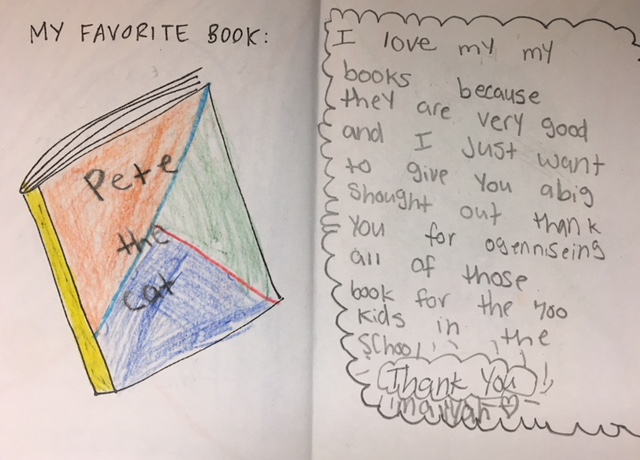 MY FAVORITE BOOK:
Pete
the
cat
I love my my
books because
they are very good
and I Just want
to give You abig
Shought out thank
You for ogenniseing
all of those
book for the 700
kids in the
School
Thank You!